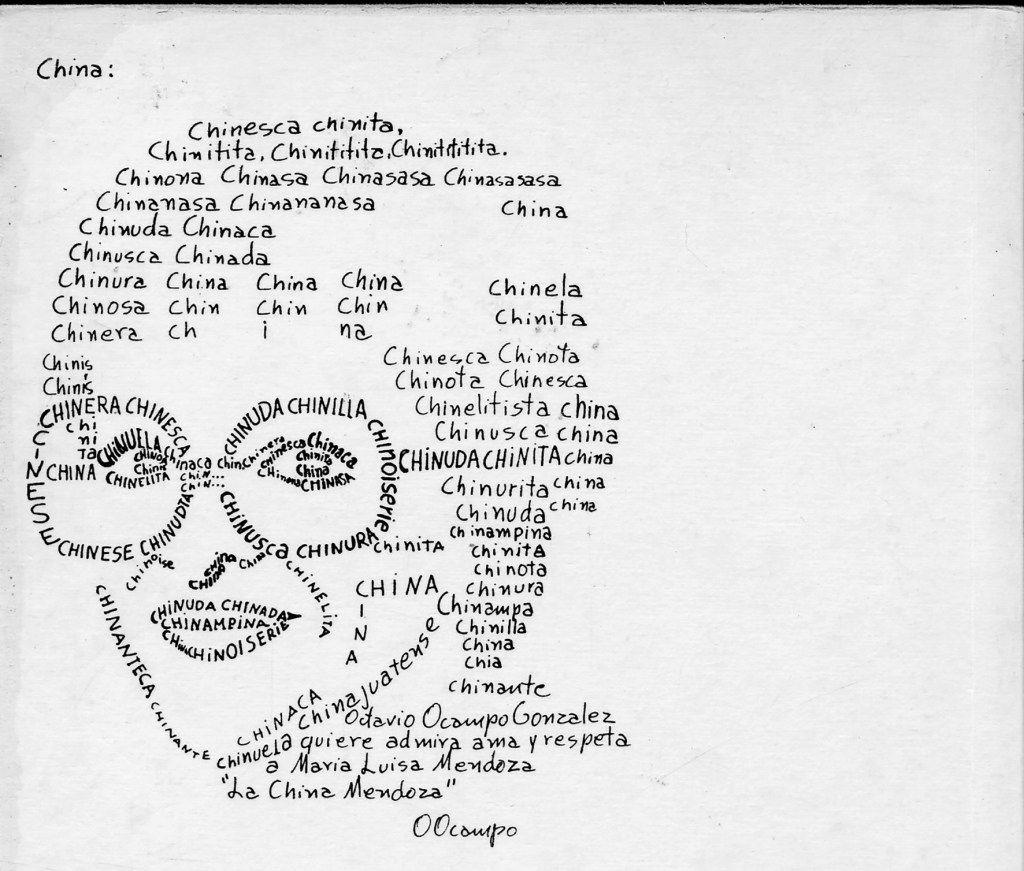 China:
Chinesca chinita,
Chinitita, Chinititita, Chinitititita.
Chinona Chinasa Chinasasa Chinasasasa
Chinanasa Chinananasa China
Chinuda Chinaca
Chinusca Chinada
Chinura China China China
Chinela
Chinosa Chin Chin Chin
Chinita
Chinera ch i na
Chinesca Chinota
Chinis
Chinota Chinesca
Chinis
CHINERA CHINESCA
CHINUDA CHINILLA
Chinelitista china
chi
ni
ta
Chinusca china
CHINUELA
Chinaca
CHINOISerie
CHINUDA CHINITA china
CHINA
CHINELITA
Chinera
Chinesca Chinaca
Chinita
China
Chinera CHINASA
CHIN...
CHIN...
CINESE
CHINESE CHINUDITA
CHINUSCA CHINURA
chinita
Chinurita china
Chinuda china
Chinampina
chinita
chinota
Chinoise
China
China
China
CHINELITA
CHINA
I
N
A
chinura
Chinampa
Chinilla
China
Chia
chinante
CHINUDA CHINADA
CHINAMPINA
CHINOISERIE
CHINANTECA CHINANTE
CHINACA
Chinajuatense
Octavio Ocampo Gonzalez
Chinuela quiere admira ama y respeta
a Maria Luisa Mendoza
"La China Mendoza"
OOcampo